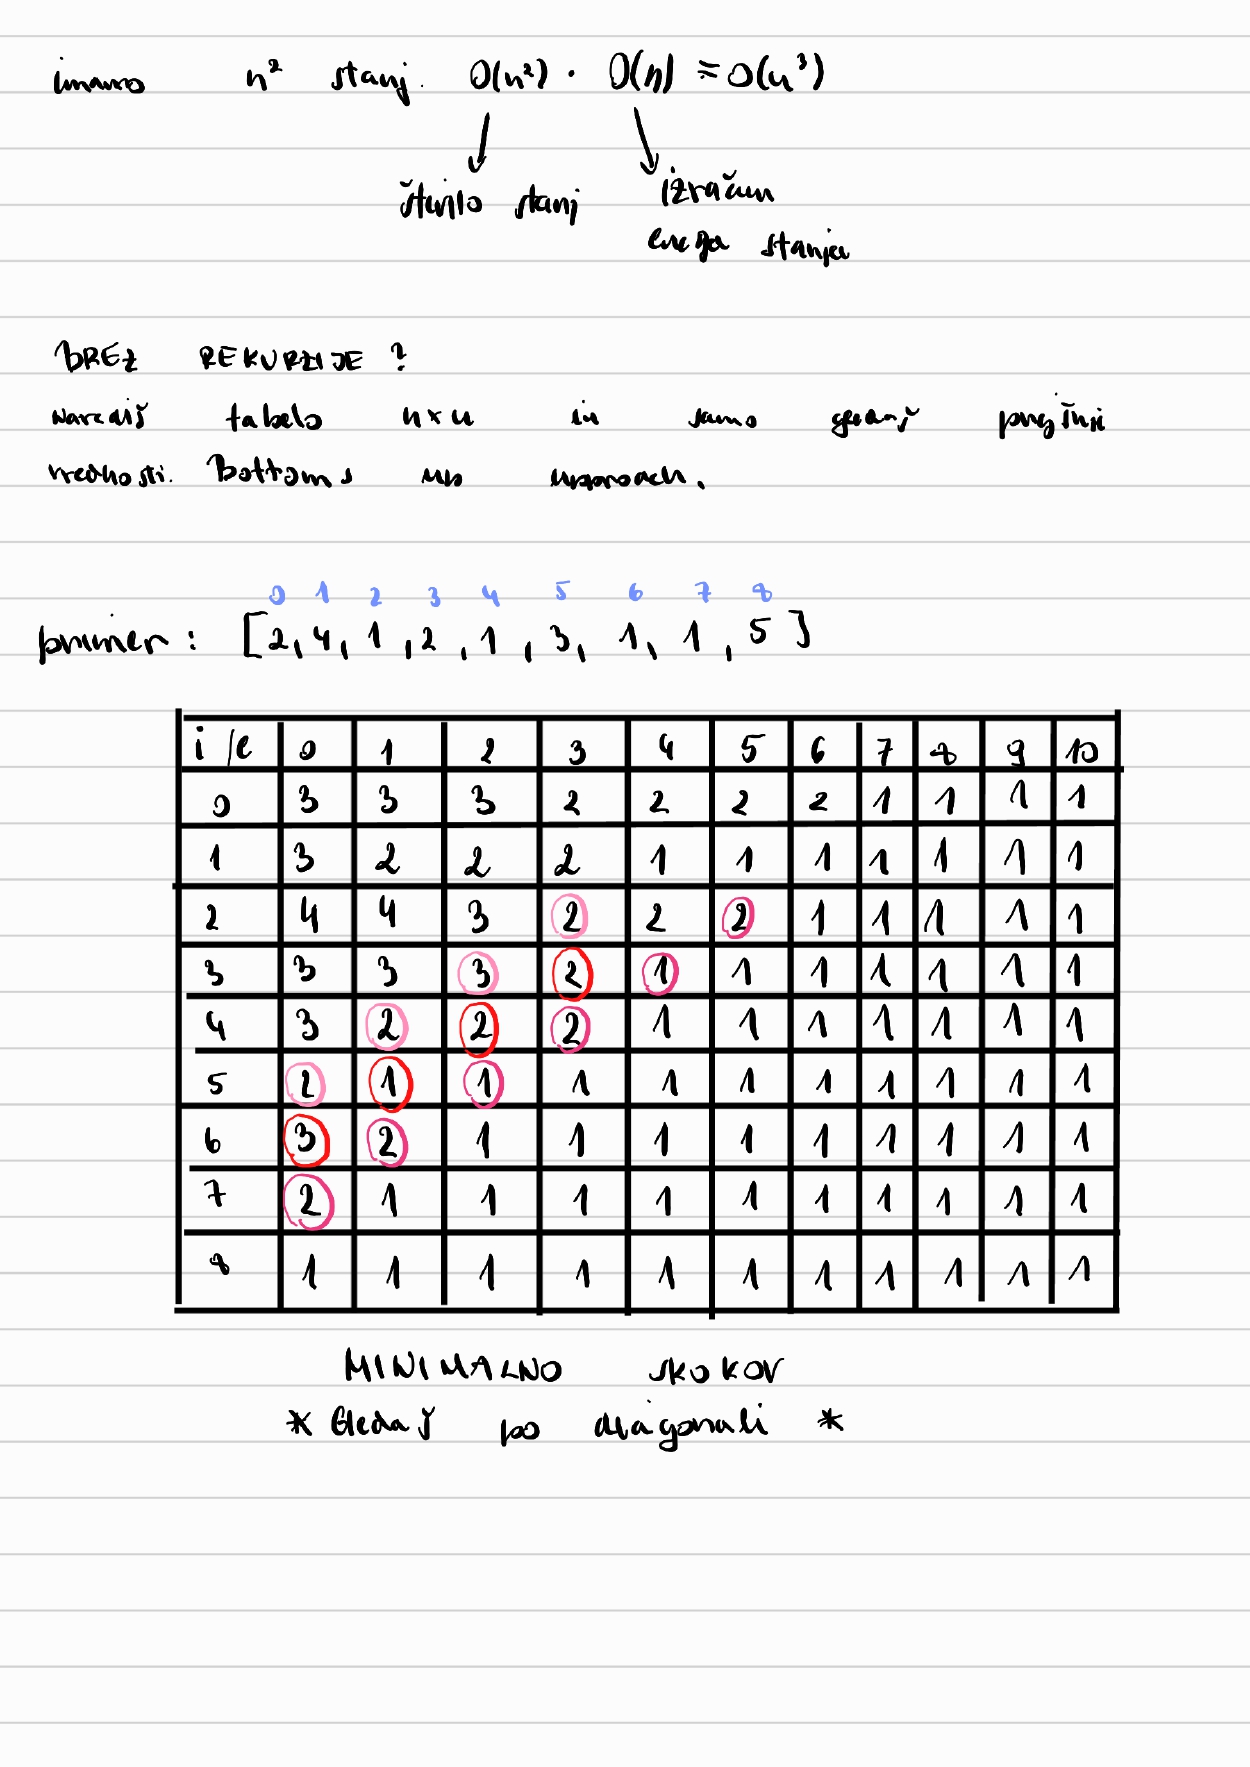 imamo n² stanj. O(n²) · O(n) = O(n³)
število stanj izračun
enega stanja
BREZ REKURZIJE?
narediš tabelo n×n in samo gledaš prejšnji
vrednosti. Bottoms up approach.
0 1 2 3 4 5 6 7 8
primer: [2, 4, 1, 2, 1, 3, 1, 1, 5]
i/e 0 1 2 3 4 5 6 7 8 9 10
0 3 3 3 2 2 2 2 1 1 1 1
1 3 2 2 2 1 1 1 1 1 1 1
2 4 4 3 2 2 2 1 1 1 1 1
3 3 3 3 2 1 1 1 1 1 1 1
4 3 2 2 2 1 1 1 1 1 1 1
5 2 1 1 1 1 1 1 1 1 1 1
6 3 2 1 1 1 1 1 1 1 1 1
7 2 1 1 1 1 1 1 1 1 1 1
8 1 1 1 1 1 1 1 1 1 1 1
MINIMALNO SKOKOV
* Gledaš po diagonali *